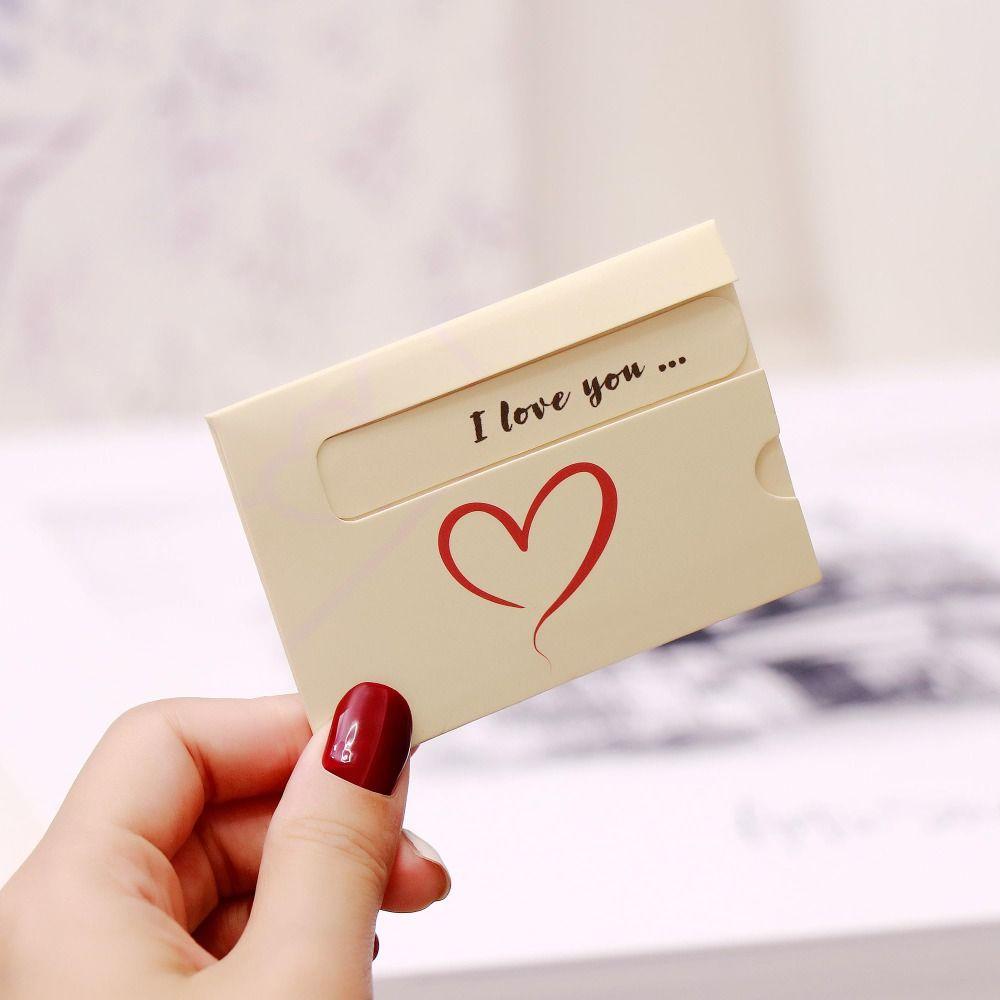 I love you ...